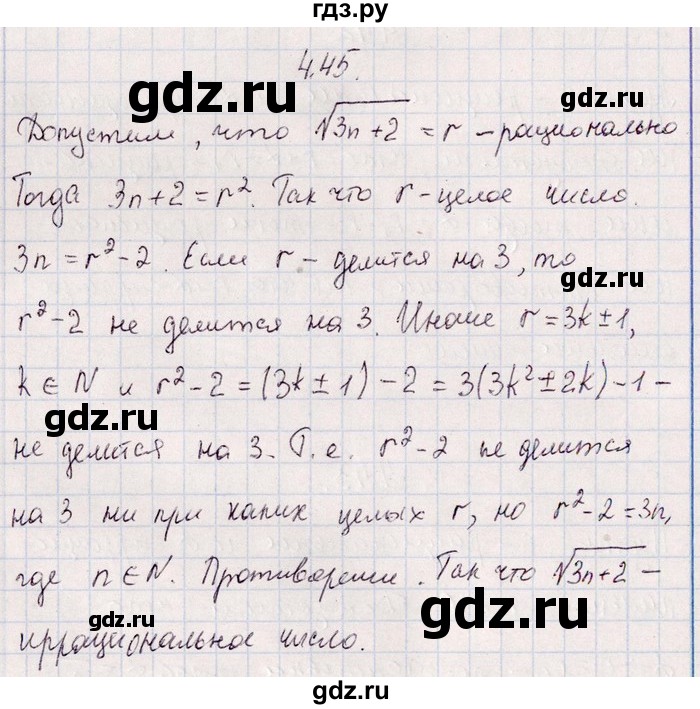 гдз.ру
4.45.
Допустим, что √3n+2 = r – рационально
Тогда 3n+2 = r². Так что r – целое число.
3n = r² - 2. Если r – делится на 3, то
r² - 2 не делится на 3. Иначе r = 3k ± 1,
k ∈ N и r² - 2 = (3k ± 1) - 2 = 3(3k² ± 2k) - 1 –
не делится на 3. Т.е. r² - 2 не делится
на 3 ни при каких целых r, но r² - 2 = 3n,
где n ∈ N. Противореши. Так что √3n+2 –
иррациональное число.
gdz.ru
gdz.ru
gdz.ru
gdz.ru
gdz.ru
gdz.ru
gdz.ru
gdz.ru
gdz.ru
gdz.ru